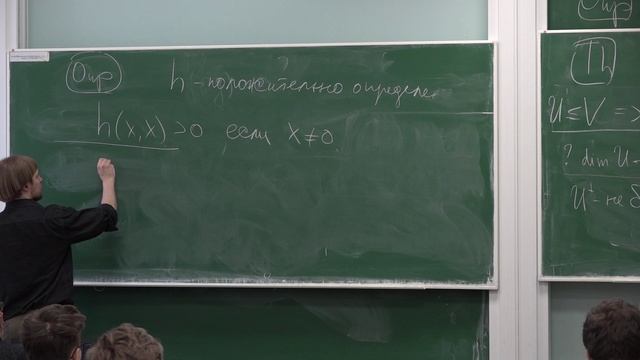 Опр h - положительно определе
h(x,x)>0 если x≠0.
Опр
Th
U≤V =>
? dim U
U⊥- не